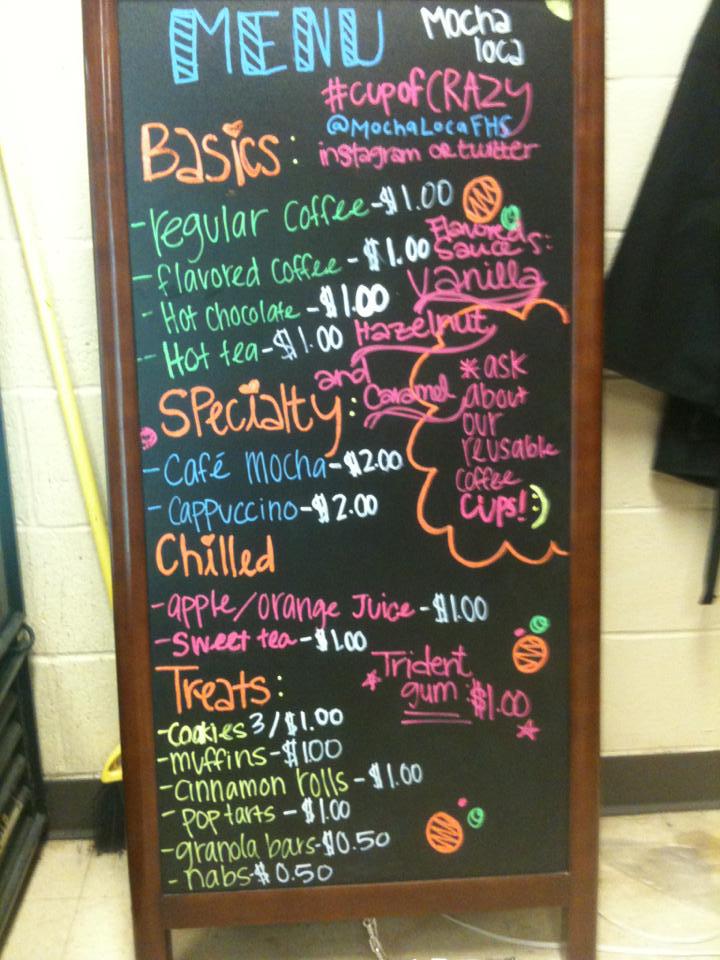 MENU
Mocha
loca
#cupofCRAZY
@MochaLocaFHS
instagram or twitter
Basics:
-regular coffee-$1.00
-flavored coffee-$1.00
-Hot chocolate-$1.00
-Hot tea-$1.00
Flavored
Sauces:
Vanilla
Hazelnut
and
Caramel
Specialty:
-Café Mocha-$2.00
-Cappuccino-$2.00
*ask
about
our
reusable
coffee
cups! :)
Chilled
-apple/orange Juice-$1.00
-sweet tea-$1.00
Trident
gum $1.00
Treats:
-cookies 3/$1.00
-muffins-$1.00
-cinnamon rolls-$1.00
-pop tarts-$1.00
-granola bars-$0.50
-nabs-$0.50